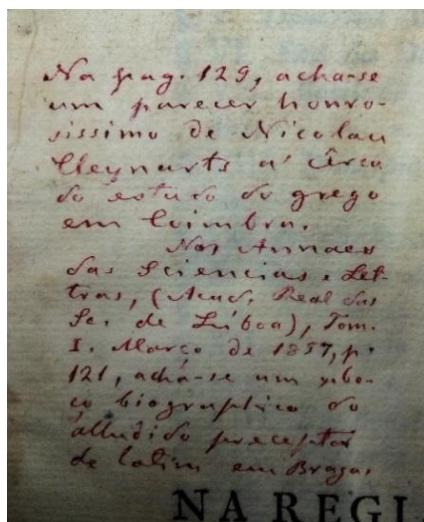 Na pag. 129, acha-se
um parecer honro-
sissimo de Nicolau
Cleynarts a' cêrca
do estudo do grego
em Coimbra.
Nos Annaes
das Sciencias e Let-
tras, (Acad. Real das
Sc. de Lisboa), Tom.
I. Março de 1857, p.
121, acha-se um esbo-
ço biographico do
alludido preceptor
de latim em Braga.
NA REGI